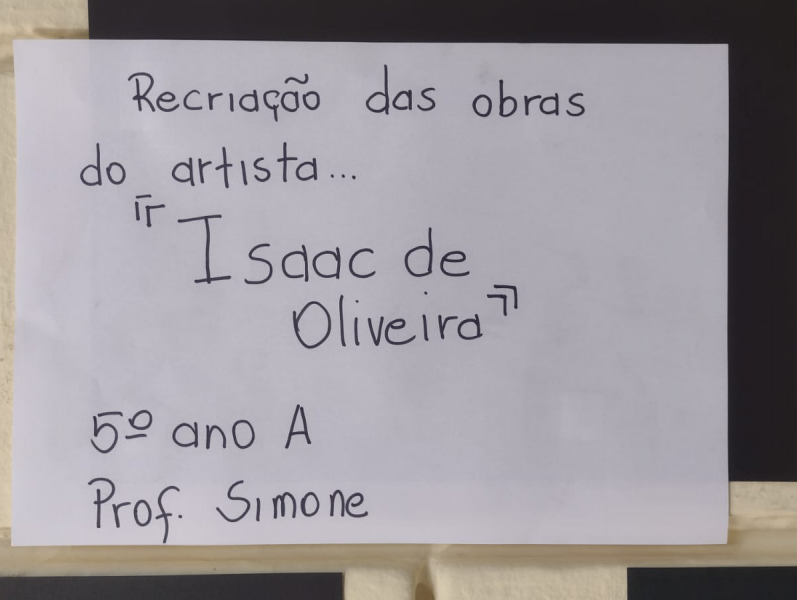 Recriação das obras
do artista...
"Isaac de
Oliveira"
5º ano A
Prof. Simone